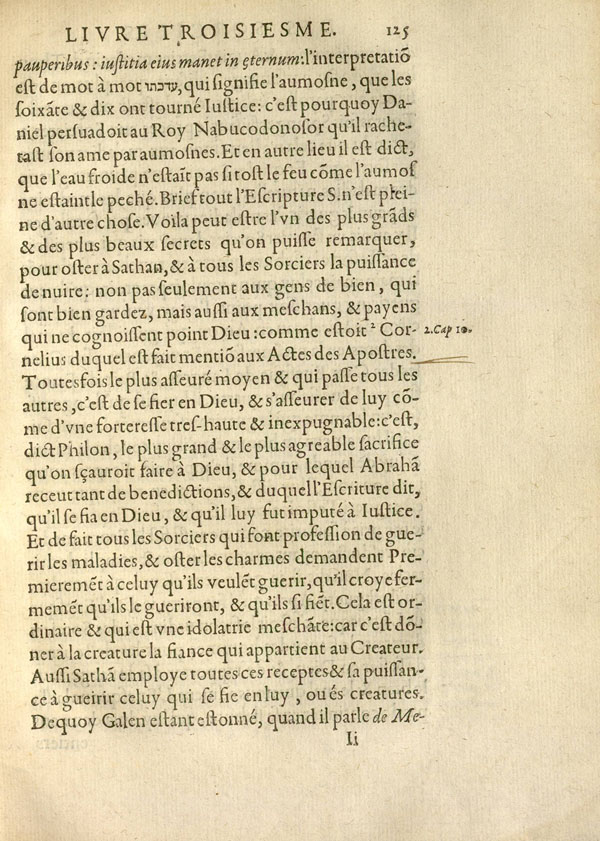 LIVRE TROISIESME. 125
pauperibus : iuſtitia eius manet in ęternum: l'interpretatiō
eſt de mot à mot צדקתו, qui ſignifie l'aumoſne, que les
ſoixāte & dix ont tourné Iuſtice: c'eſt pourquoy Da-
niel perſuadoit au Roy Nabucodonoſor qu'il rache-
taſt ſon ame par aumoſnes. Et en autre lieu il eſt dict,
que l'eau froide n'eſtaīt pas ſi toſt le feu cōme l'aumoſ
ne eſtaint le peché. Brief tout l'Eſcripture S. n'eſt plei-
ne d'autre choſe. Voila peut eſtre l'vn des plus grāds
& des plus beaux ſecrets qu'on puiſſe remarquer,
pour oſter à Sathan, & à tous les Sorciers la puiſſance
de nuire: non pas ſeulement aux gens de bien, qui
ſont bien gardez, mais auſſi aux meſchans, & payens
qui ne cognoiſſent point Dieu : comme eſtoit ² Cor-
2. Cap 10.
nelius duquel eſt fait mentiō aux Actes des Apoſtres.
Toutesfois le plus aſſeuré moyen & qui paſſe tous les
autres, c'eſt de ſe fier en Dieu, & s'aſſeurer de luy cō-
me d'vne fortereſſe treſ-haute & inexpugnable: c'eſt,
dict Philon, le plus grand & le plus agreable ſacrifice
qu'on ſçauroit faire à Dieu, & pour lequel Abrahā
receut tant de benedictions, & duquel l'Eſcriture dit,
qu'il ſe fia en Dieu, & qu'il luy fut imputé à Iuſtice.
Et de fait tous les Sorciers qui font profeſſion de gue-
rir les maladies, & oſter les charmes demandent Pre-
mieremēt à celuy qu'ils veulēt guerir, qu'il croye fer-
memēt qu'ils le gueriront, & qu'ils ſi fiēt. Cela eſt or-
dinaire & qui eſt vne idolatrie meſchāte: car c'eſt dō-
ner à la creature la fiance qui appartient au Createur.
Auſſi Sathā employe toutes ces receptes & ſa puiſſan-
ce à gueirir celuy qui ſe fie en luy, ou és creatures.
Dequoy Galen eſtant eſtonné, quand il parle de Me-
Ii